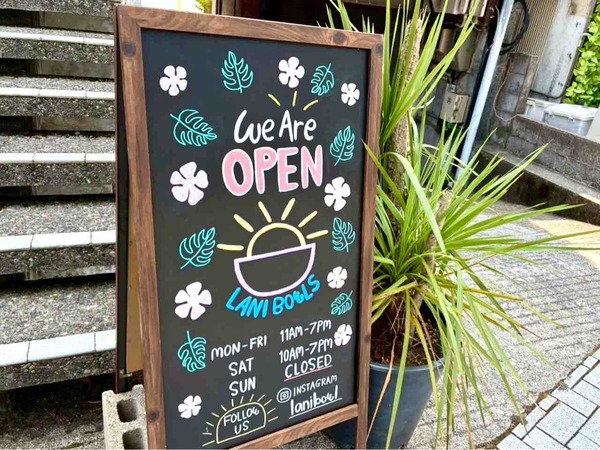 We Are
OPEN
LANI BOWLS
MON-FRI 11AM-7PM
SAT 10AM-7PM
SUN CLOSED
FOLLOW US
INSTAGRAM
lanibowl